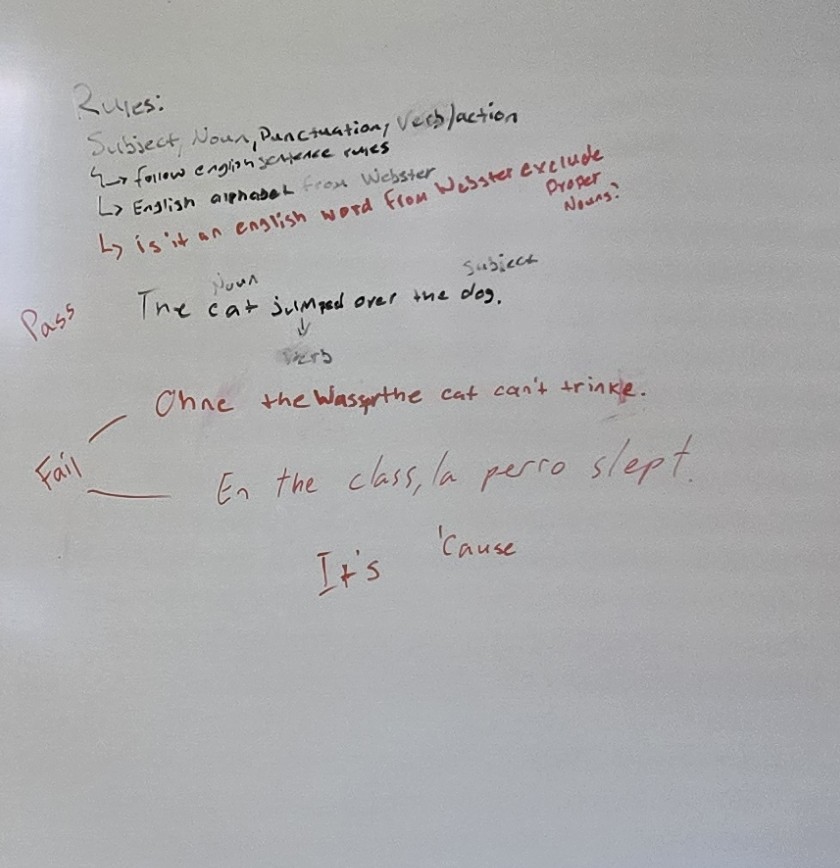 Rules:
Subject, Noun, Punctuation, Verb/action
↳ follow english sentence rules
↳ English alphabet from Webster
↳ is it an english word from Webster exclude
Proper
Nouns?
Noun Subject
Pass The cat jumped over the dog.
↓
Verb
Ohne the Wasser the cat can't trinke.
Fail
En the class, la perro slept.
It's 'cause